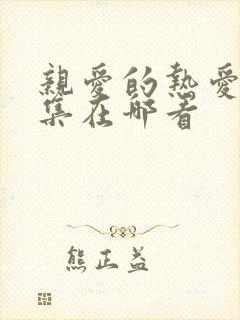 親愛的熱愛
集在哪看
熊正益